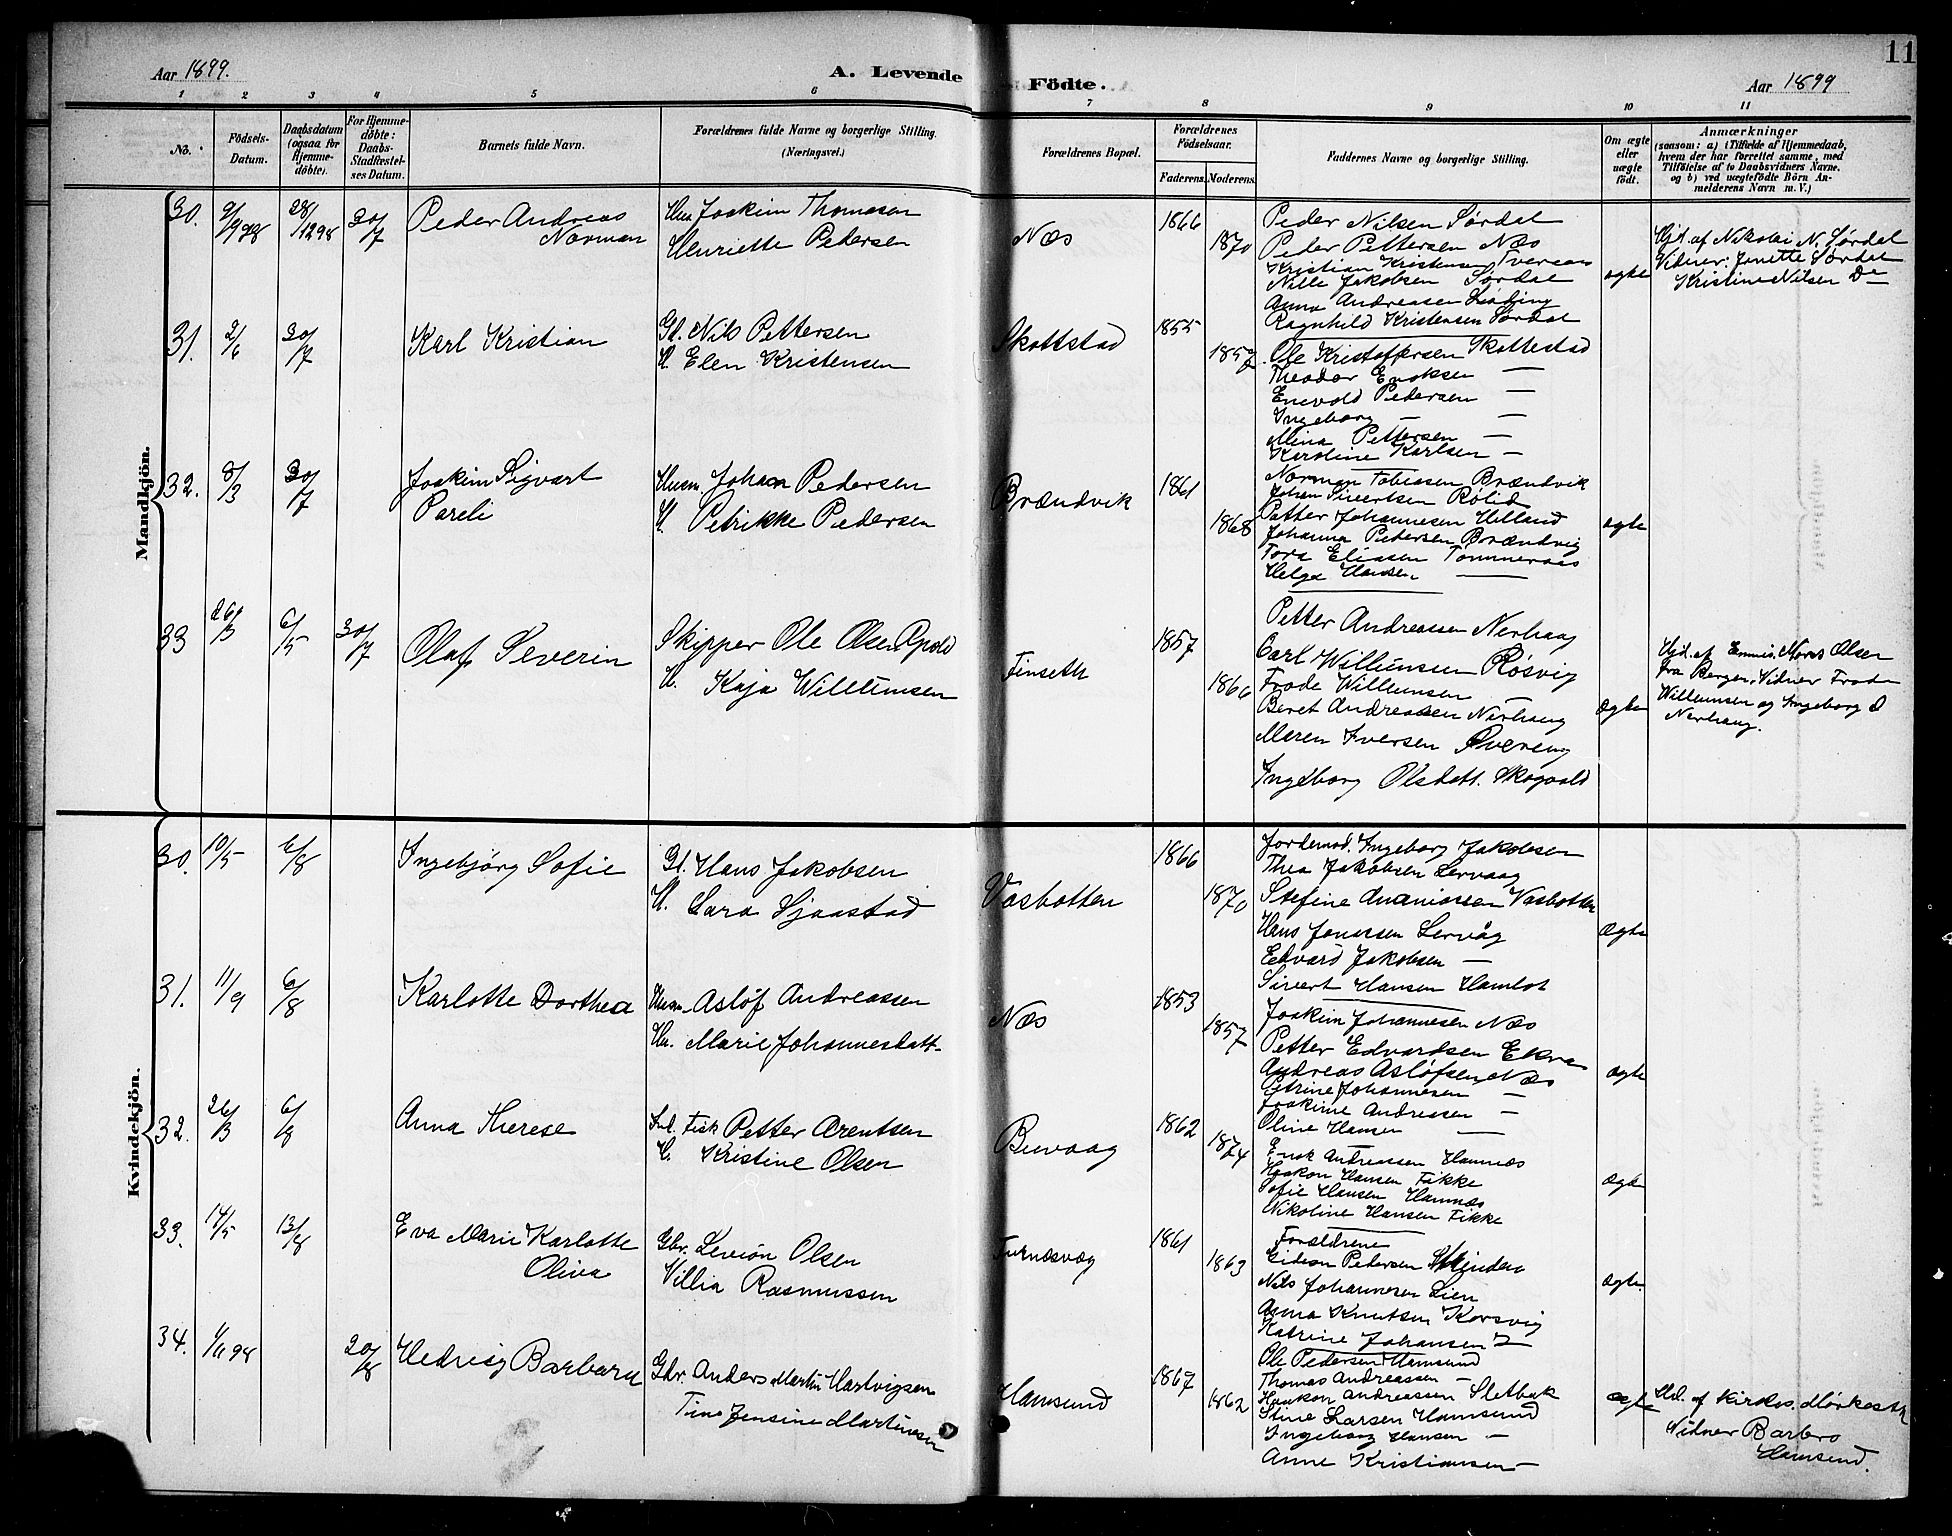 11
Aar 1899.
A. Levende Födte.
Aar 1899
1 2 3 4 5 6 7 8 9 10 11
No.
Födsels-Datum.
Daabsdatum (ogsaa for Hjemme-döbte).
For Hjemme-döbte: Daabs-Stadfæstel-ses Datum.
Barnets fulde Navn.
Forældrenes fulde Navne og borgerlige Stilling.
(Næringsvei.)
Forældrenes Bopæl.
Forældrenes Födselsaar.
Faderens. Moderens.
Faddernes Navne og borgerlige Stilling.
Om ægte eller uægte født.
Anmærkninger
(saasom: a) i Tilfælde af Hjemmedaab, hvem der har forrettet samme, med Tilföielse af to Daabsvidners Navne. og b) ved uægtefödte Börn An-melderens Navn m. V.)
Mandkjön.
30. 9/9 98 28/12 98 30/7 Peder Andreas Norman
Joakim Thomasen
Henriette Pedersen
Næs 1866 1870
Peder Nilsen Sørdal
Peder Pettersen Næs
Kristian Kristensen Tveraas
Nille Jakobsen Sørdal
Anna Andreasen Løding
Ragnhild Kristensen Sørdal
ægte
Hjd. af Nikolai N. Sørdal
Vidner: Jenette Sørdal
Kristine Nilsen Do
31. 2/6 30/7 Karl Kristian
Gd. Nils Pettersen
H. Elen Kristensen
Skottstad 1855 1857
Ole Kristoffersen Skottestad
Theodor Enoksen —
Enevold Pedersen —
Ingeborg — —
Mina Pettersen —
Karoline Karlsen —
32. 8/3 30/7 Joakim Sigvart Pareli
Husm Johan Pedersen
H. Petrikke Pedersen
Brændvik 1861 1868
Norman Tobiasen Brændvik
Johan Sivertsen Rølid
Petter Johannesen Helland
Johanna Pedersen Brændvig
Tora Eliasen Tømmeraas
Helga Hansen —
ægte
33 26/3 6/5 30/7 Olaf Severin
Skipper Ole Olsen
H. Kaja Willumsen
Finseth 1857 1866
Petter Andreassen Nerhaug
Carl Willumsen Røsvig
Frode Willumsen —
Beret Andreassen Nerhaug
Maren Iversen
Ingeborg Olsdatt. Skogvold
ægte
Hjd. af Emmis. Olsen
fra Bergen. Vidner Frode
Willumsen og Ingeborg O
Nerhaug.
Kvindekjön.
30. 10/5 6/8 Ingebjörg Sofie
Gd. Hans Jakobsen
H. Sara Sjaastad
Vasbotten 1866 1870
Jordemod. Ingeborg Jakobsen
Thea Jakobsen Lervaag
Stefine Ananiassen Vasbotten
Hans Jonassen Lervåg
Edvard Jakobsen —
Sivert Hansen Hamlot
Ægte
31. 11/9 6/8 Karlotte Dorthea
Husm. Asløf Andreassen
Hu. Marie Johannesdatt.
Næs 1853 1857
Joakim Johannesen Næs
Petter Edvardsen
Andreas Asløfsen Næs
Petrine Johannesen —
Joakine Andreasen —
Oline Hansen —
Ægte
32. 26/3 6/8 Anna Therese
Ind. Fisk Petter Arentsen
H. Kristine Olsen
Buvaag 1862 1874
Enok Andreassen Hamnæs
Haakon Hansen Fikke
Sofie Hansen Hamnæs
Nikoline Hansen Fikke
Ægte
33. 14/5 13/8 Eva Marie Karlotte Oliva
Gbr. Levion Olsen
Villia Rasmussen
Furnæsvåg 1861 1863
Forældrene
Gideon Pedersen
Nils Johannesen Lien
Anna Knutsen Korsvig
Katrine Johansen
Ægte.
34. 1/11 98 20/8 Hedvig Barbara
Gbr. Anders Martin Hartvigsen
Tina Jensine Martinesen
Hamsund 1867 1862
Ole Pedersen Hamsund
Thomas Andreassen —
Haakon Andreassen Sletbak
Stine Larsen Hamsund
Ingeborg Hansen —
Anne Kristiansen —
ægte
Hd. af Kirkes.
Vidner Barbro
Hamsund.